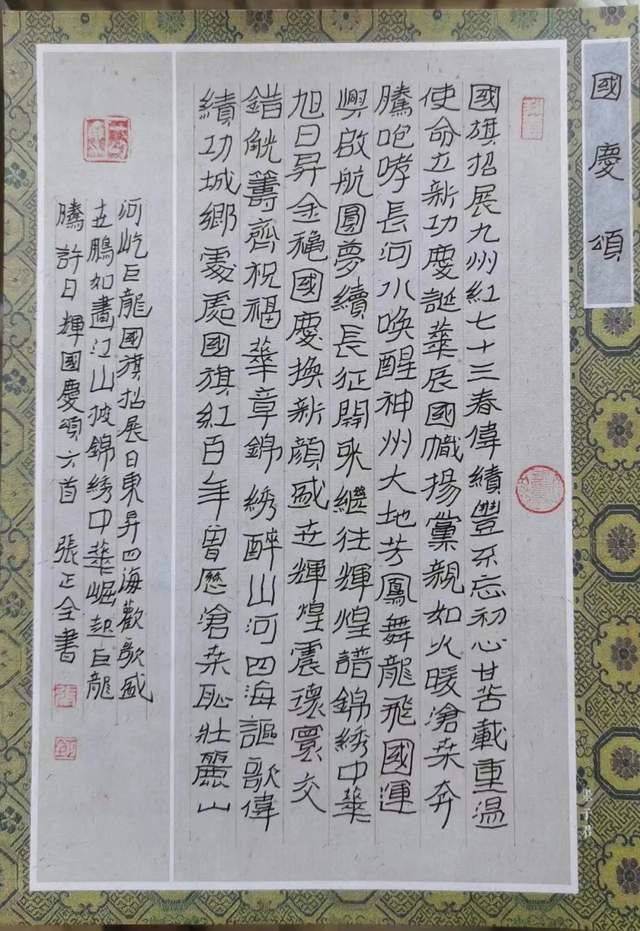 國慶頌
國旗招展九州紅七十三春偉績豐不忘初心甘苦載重溫
使命立新功慶誕華辰國幟揚黨親如火暖滄桑奔
騰咆哮長河水喚醒神州大地芳鳳舞龍飛國運
興啟航圓夢續長征開來繼往輝煌譜錦綉中華
旭日昇金龝國慶換新顏盛世輝煌震環寰交
錯觥籌齊祝福華章錦綉醉山河四海謳歌偉
績功城鄉處處國旗紅百年曾歷滄桑恥壯麗山
河屹巨龍國旗招展日東昇四海歡歌盛
世鵬如畫江山披錦綉中華崛起巨龍
騰 許日輝國慶頌六首 張正全書